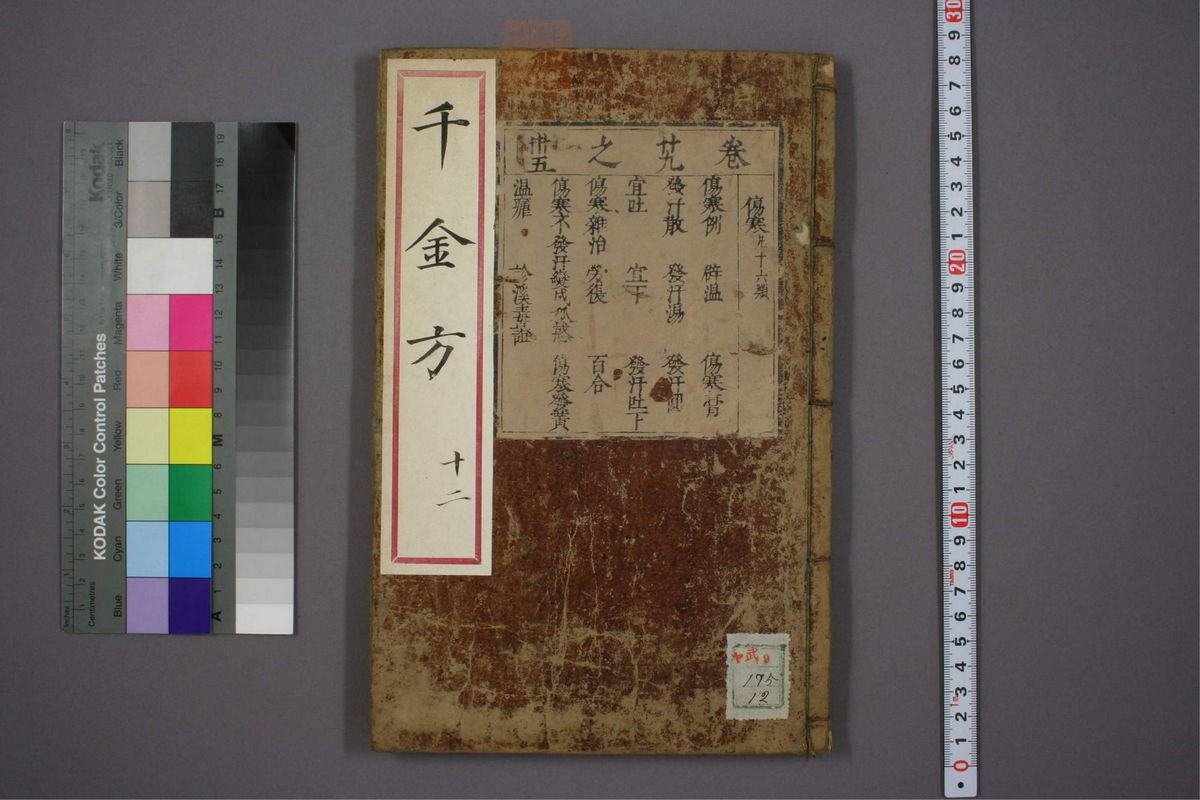 千金方
十二
卷廿九之卅五
傷寒凢十六類
傷寒例 辟温 傷寒膏
發汗散 發汗湯 發汗圓
宜吐 宜下 發汗吐下
傷寒雜治 勞復 百合
傷寒不發汗變成狐惑 傷寒發黃
温瘧 診溪毒證
175
12
Kodak
KODAK Color Control Patches
Blue Cyan Green Yellow Red Magenta White 3/Color Black
Inches
Centimetres
A 1 2 3 4 5 6 M 8 9 10 11 12 13 14 15 B 17 18 19
0 1 2 3 4 5 6 7 8 9 10 1 2 3 4 5 6 7 8 9 20 1 2 3 4 5 6 7 8 9 30